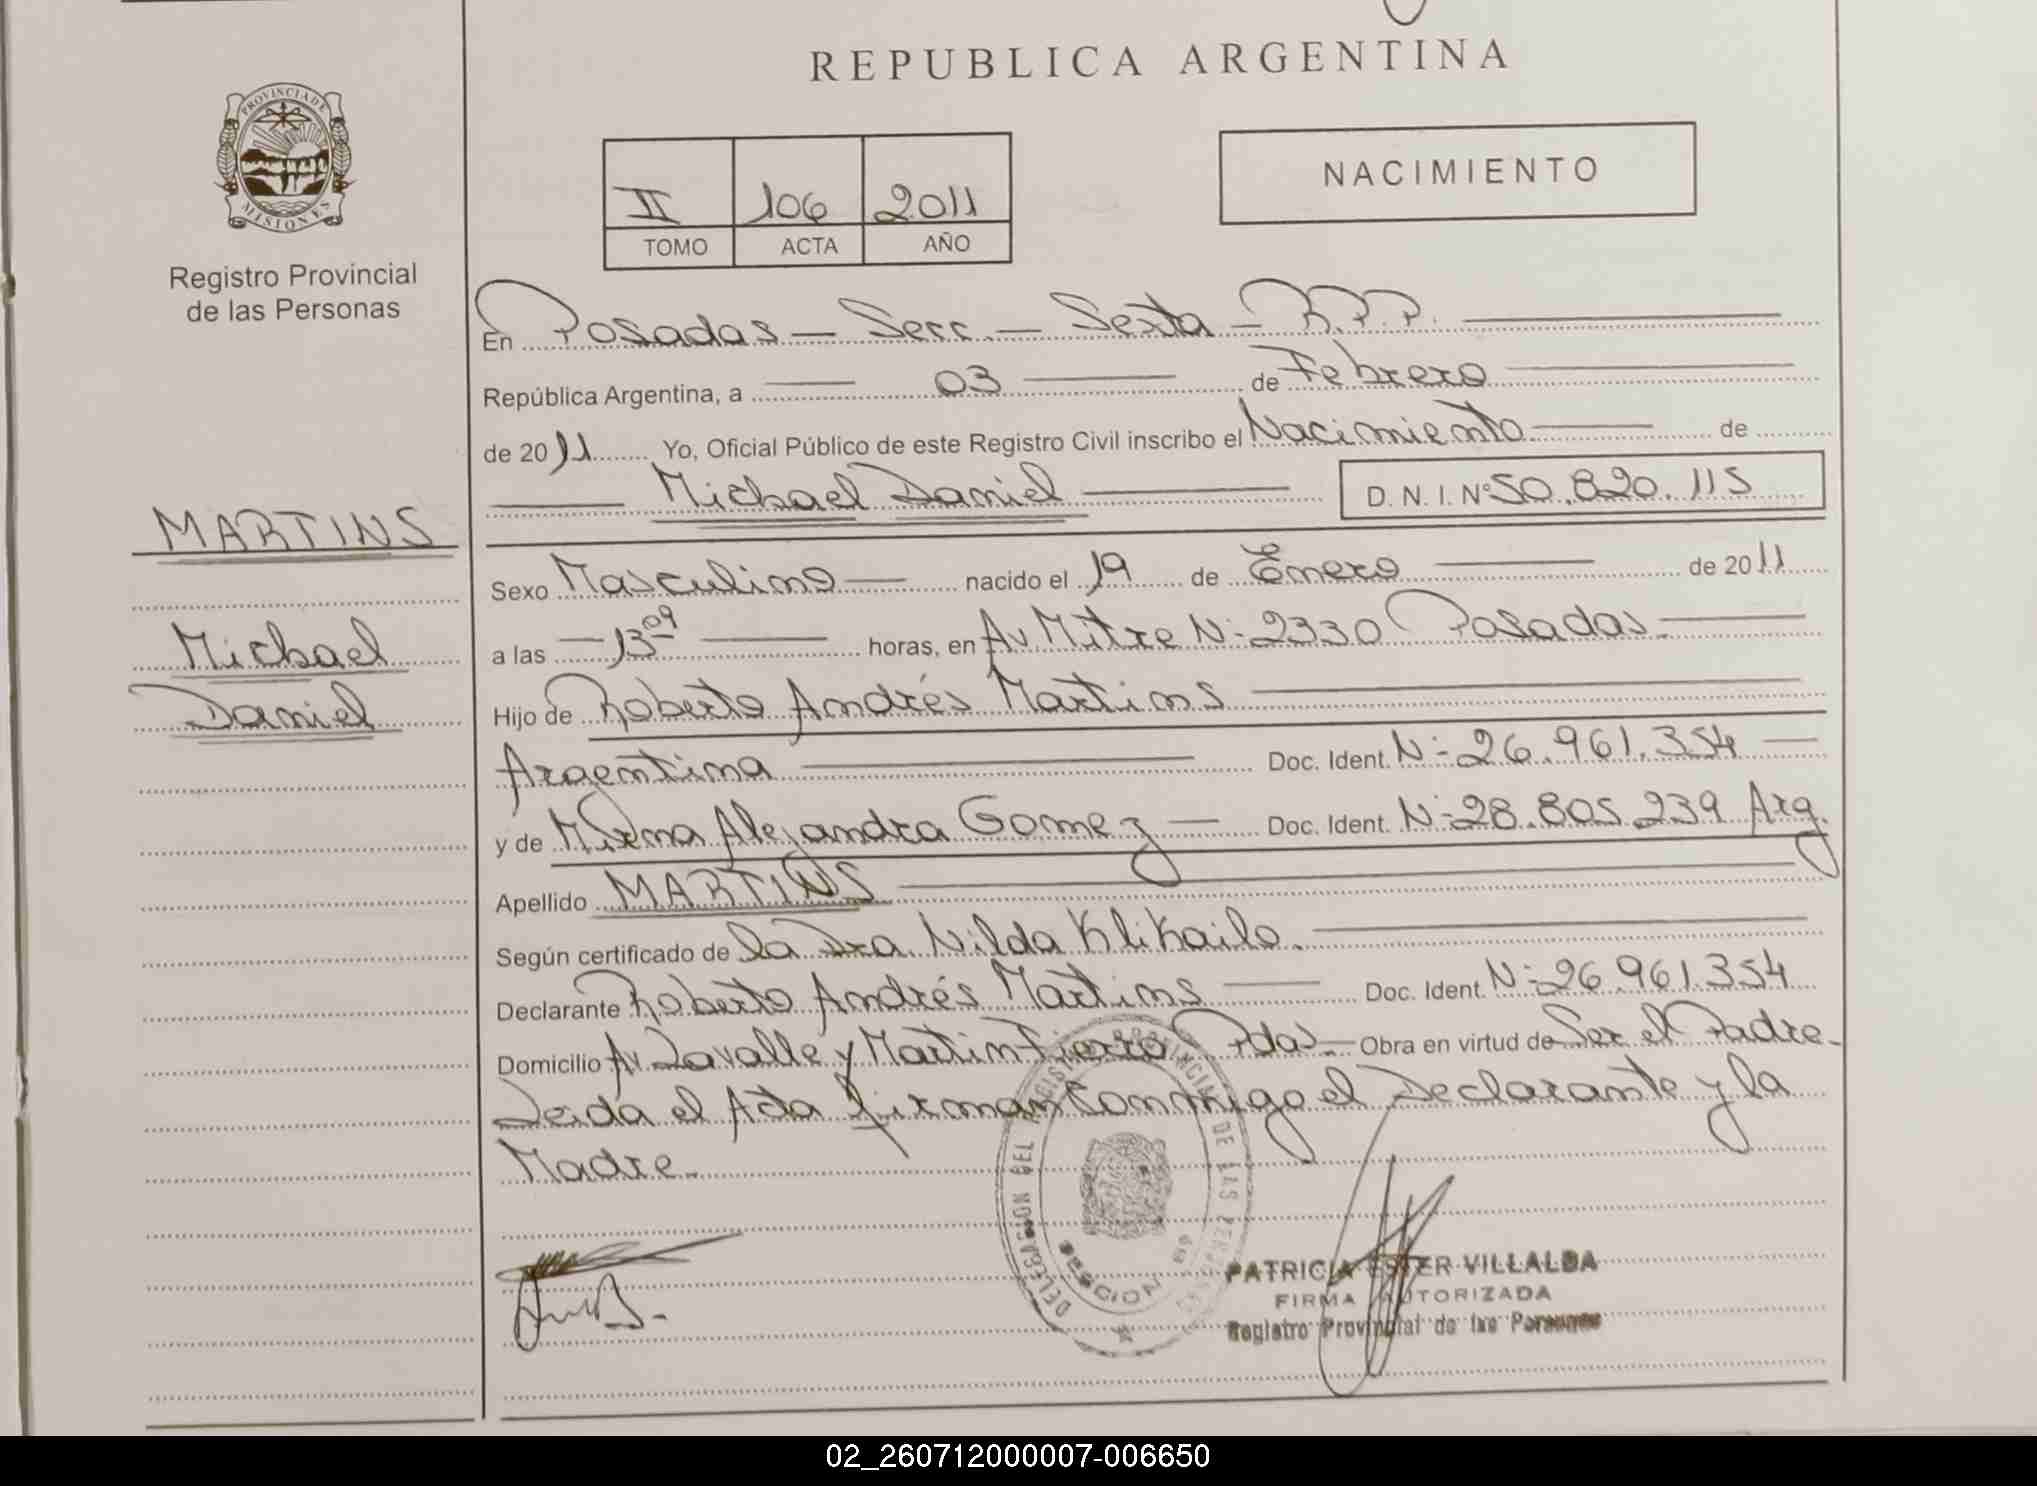 REPUBLICA ARGENTINA
PROVINCIA DE
MISIONES
Registro Provincial
de las Personas
II 106 2011
TOMO ACTA AÑO
NACIMIENTO
En Posadas - Secc. - Sexta - R.P.P.
República Argentina, a 03 de Febrero
de 2011 Yo, Oficial Público de este Registro Civil inscribo el Nacimiento de
Michael Daniel D.N.I. Nº 50.820.115
MARTINS
Michael
Daniel
Sexo Masculino nacido el 19 de Enero de 2011
a las 13 09 horas, en Av Mitre Nº 2330 Posadas.
Hijo de Roberto Andrés Martins
Argentina Doc. Ident. Nº 26.961.354
y de Mirna Alejandra Gomez Doc. Ident. Nº 28.805.239 Arg.
Apellido MARTINS
Según certificado de la Dra. Nilda Klikailo.
Declarante Roberto Andrés Martins Doc. Ident. Nº 26.961.354
Domicilio Av. Lavalle y Martin Fierro Pdas. Obra en virtud de Ser el Padre.
Leida el Acta firman Conmigo el Declarante y la
Madre.
DELEGACION DEL REGISTRO PROVINCIAL DE LAS PERSONAS
SECCION 6ta
PATRICIA ESTER VILLALBA
FIRMA AUTORIZADA
Registro Provincial de las Personas
02_260712000007-006650